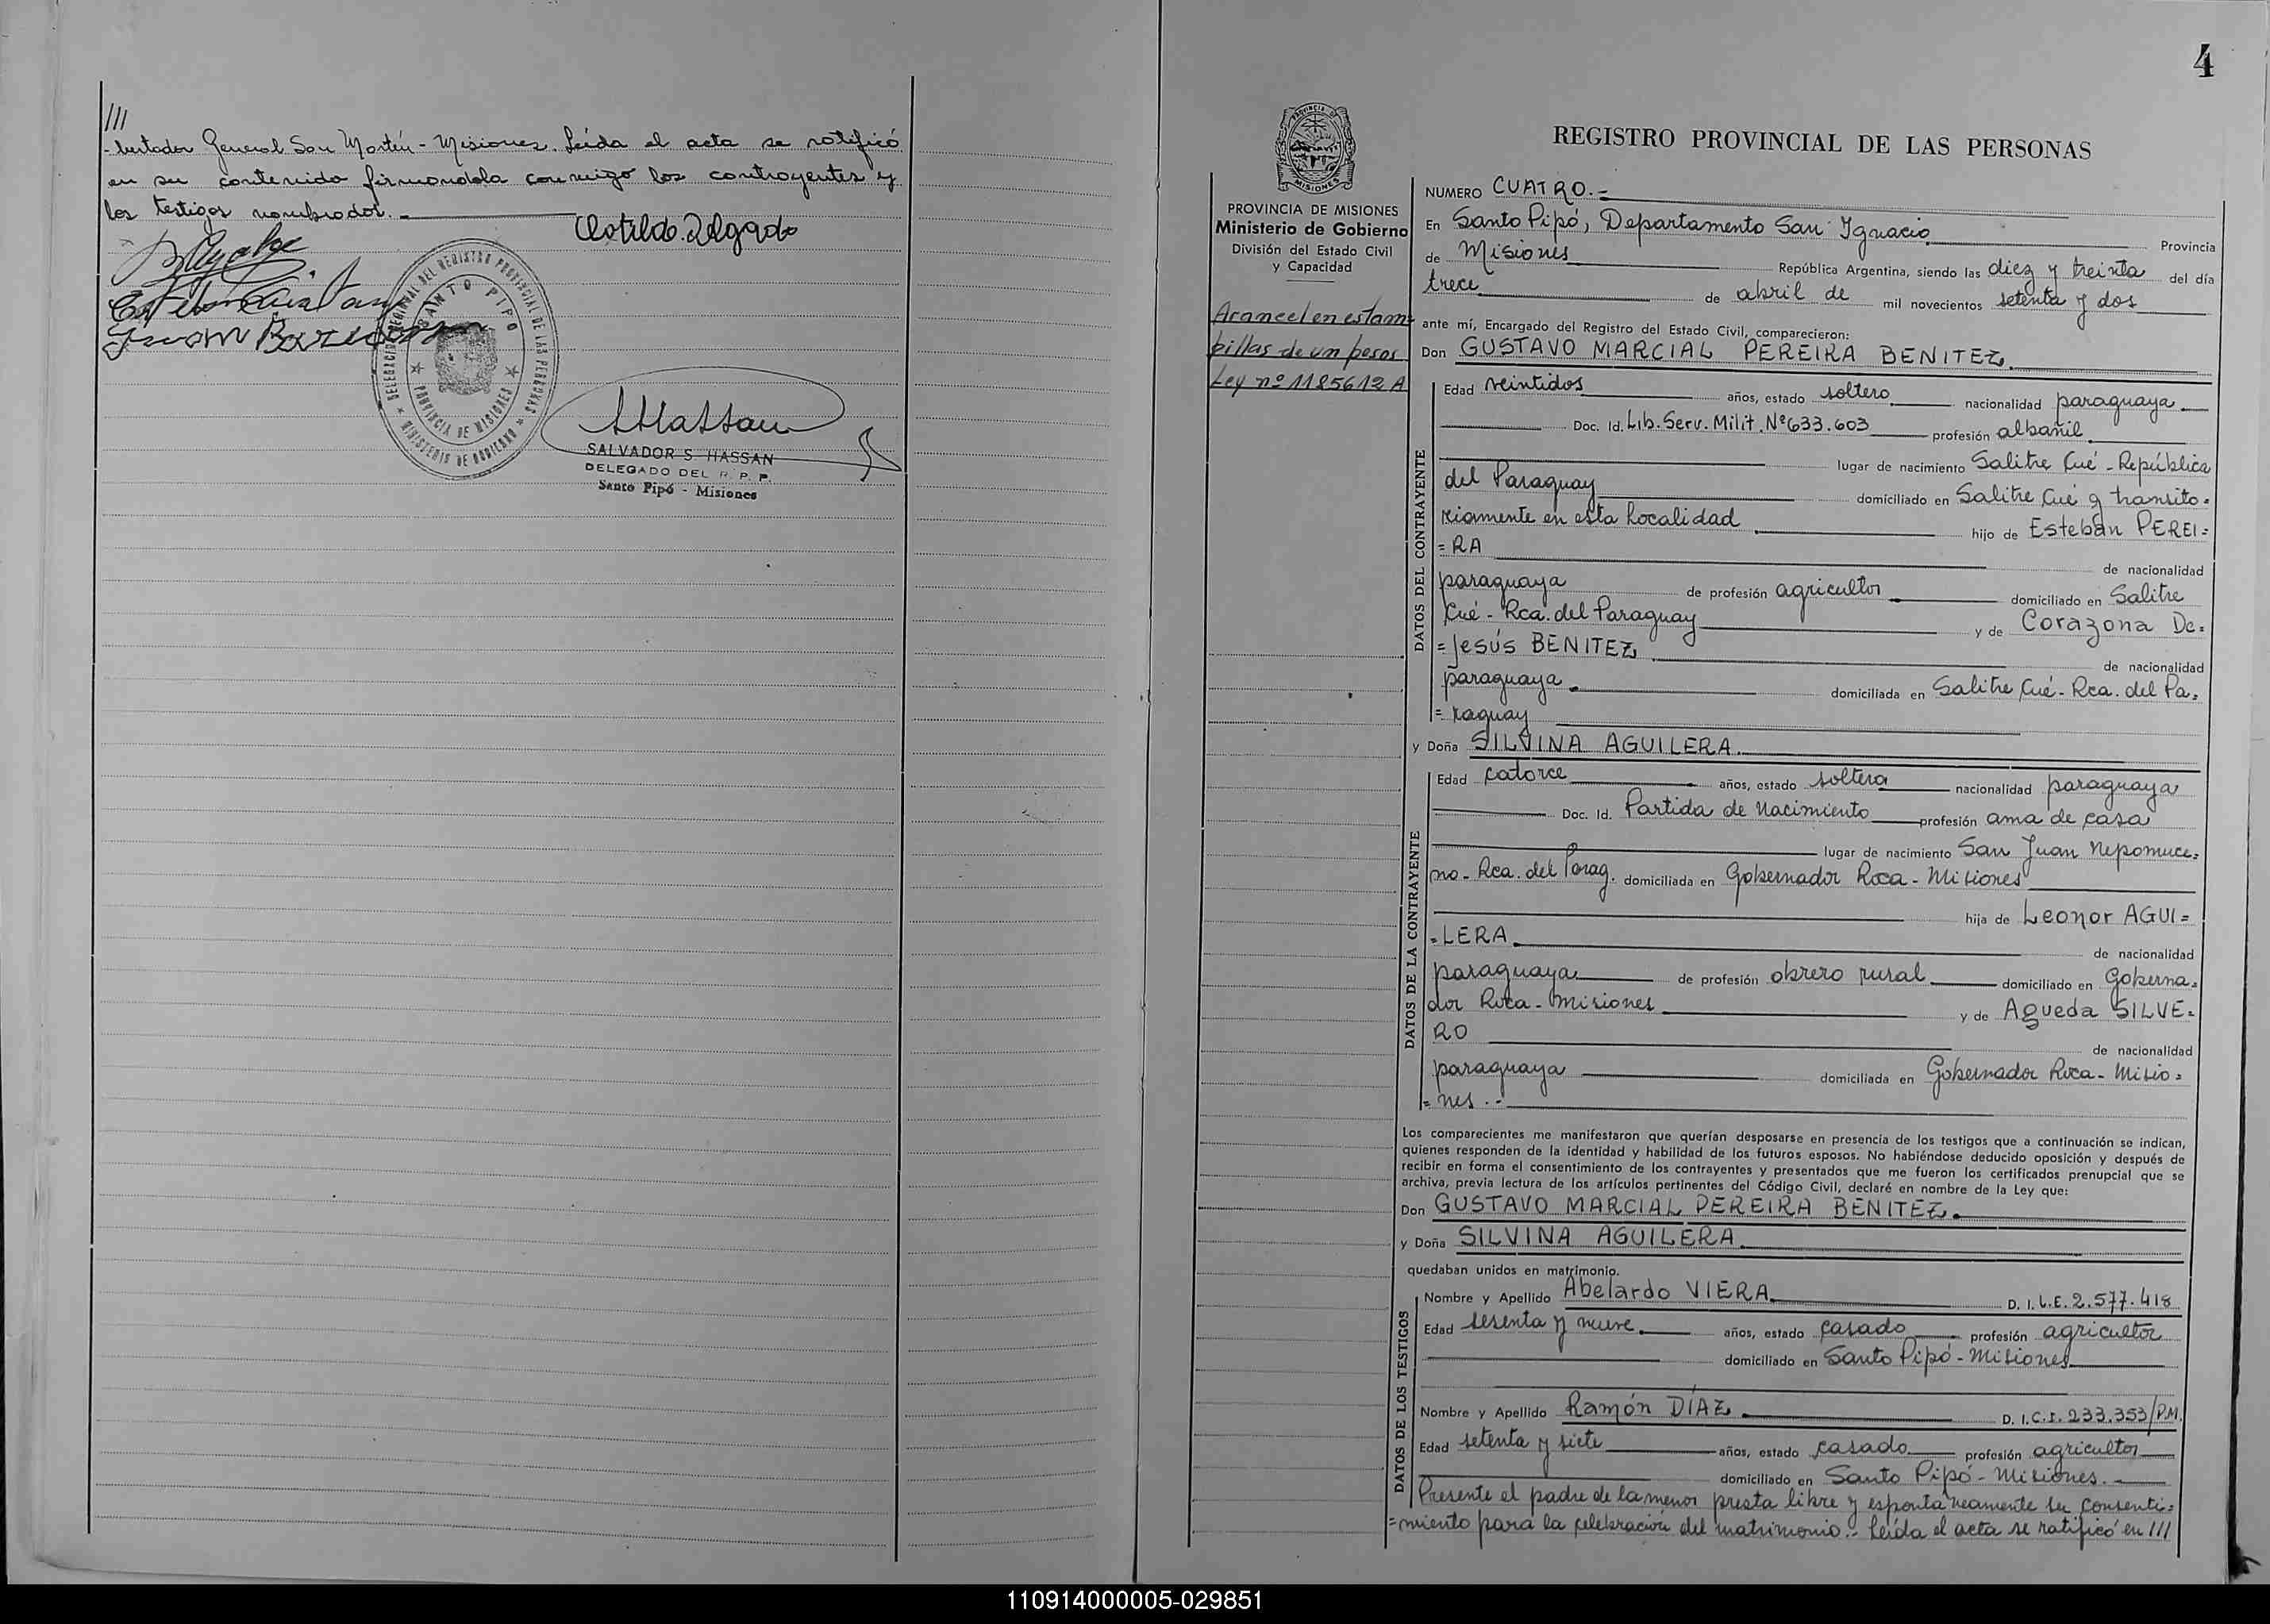 ///
-bertador General San Martín - Misiones. Leída el acta se ratificó
en su contenido firmandola conmigo los contrayentes y
los testigos nombrados.-
Clotilda. Delgado
DELEGACION REGIONAL DEL REGISTRO PROVINCIAL DE LAS PERSONAS
SANTO PIPO
PROVINCIA DE MISIONES
SALVADOR S. HASSAN
DELEGADO DEL R. P. P.
Santo Pipó - Misiones
4
PROVINCIA DE
MISIONES
REGISTRO PROVINCIAL DE LAS PERSONAS
PROVINCIA DE MISIONES
Ministerio de Gobierno
División del Estado Civil
y Capacidad
Arancel en estam=
pillas de un pesos
Ley nº 1185612 A
NUMERO CUATRO.-
En Santo Pipó, Departamento San Ignacio Provincia
de Misiones República Argentina, siendo las diez y treinta del día
trece de abril de mil novecientos setenta y dos
ante mí, Encargado del Registro del Estado Civil, comparecieron:
Don GUSTAVO MARCIAL PEREIRA BENITEZ.
DATOS DEL CONTRAYENTE
Edad veintidos años, estado soltero nacionalidad paraguaya
Doc. Id. Lib. Serv. Milit. Nº 633.603 profesión albañil
lugar de nacimiento Salitre Cué - República
del Paraguay domiciliado en Salitre Cué y transito=
riamente en esta localidad hijo de Esteban PEREI=
=RA de nacionalidad
paraguaya de profesión agricultor domiciliado en Salitre
Cué - Rca. del Paraguay y de Corazona De=
=Jesús BENITEZ de nacionalidad
paraguaya domiciliada en Salitre Cué - Rca. del Pa=
=raguay
y Doña SILVINA AGUILERA.
DATOS DE LA CONTRAYENTE
Edad catorce años, estado soltera nacionalidad paraguaya
Doc. Id. Partida de Nacimiento profesión ama de casa
lugar de nacimiento San Juan Nepomuce=
no - Rca. del Parag. domiciliada en Gobernador Roca - Misiones
hija de Leonor AGUI=
=LERA de nacionalidad
paraguaya de profesión obrero rural domiciliado en Goberna=
dor Roca - Misiones y de Agueda SILVE=
RO de nacionalidad
paraguaya domiciliada en Gobernador Roca - Misio=
=nes.-
Los comparecientes me manifestaron que querían desposarse en presencia de los testigos que a continuación se indican,
quienes responden de la identidad y habilidad de los futuros esposos. No habiéndose deducido oposición y después de
recibir en forma el consentimiento de los contrayentes y presentados que me fueron los certificados prenupcial que se
archiva, previa lectura de los artículos pertinentes del Código Civil, declaré en nombre de la Ley que:
Don GUSTAVO MARCIAL PEREIRA BENITEZ.
y Doña SILVINA AGUILERA.
quedaban unidos en matrimonio.
DATOS DE LOS TESTIGOS
Nombre y Apellido Abelardo VIERA D. I. L.E. 2.577.418
Edad sesenta y nueve años, estado casado profesión agricultor
domiciliado en Santo Pipó - Misiones
Nombre y Apellido Ramón DÍAZ D. I. C.I. 233.353/P.M.
Edad setenta y siete años, estado casado profesión agricultor
domiciliado en Santo Pipó - Misiones.
Presente el padre de la menor presta libre y espontaneamente su consenti=
=miento para la celebración del matrimonio.- Leída el acta se ratificó en ///
110914000005-029851